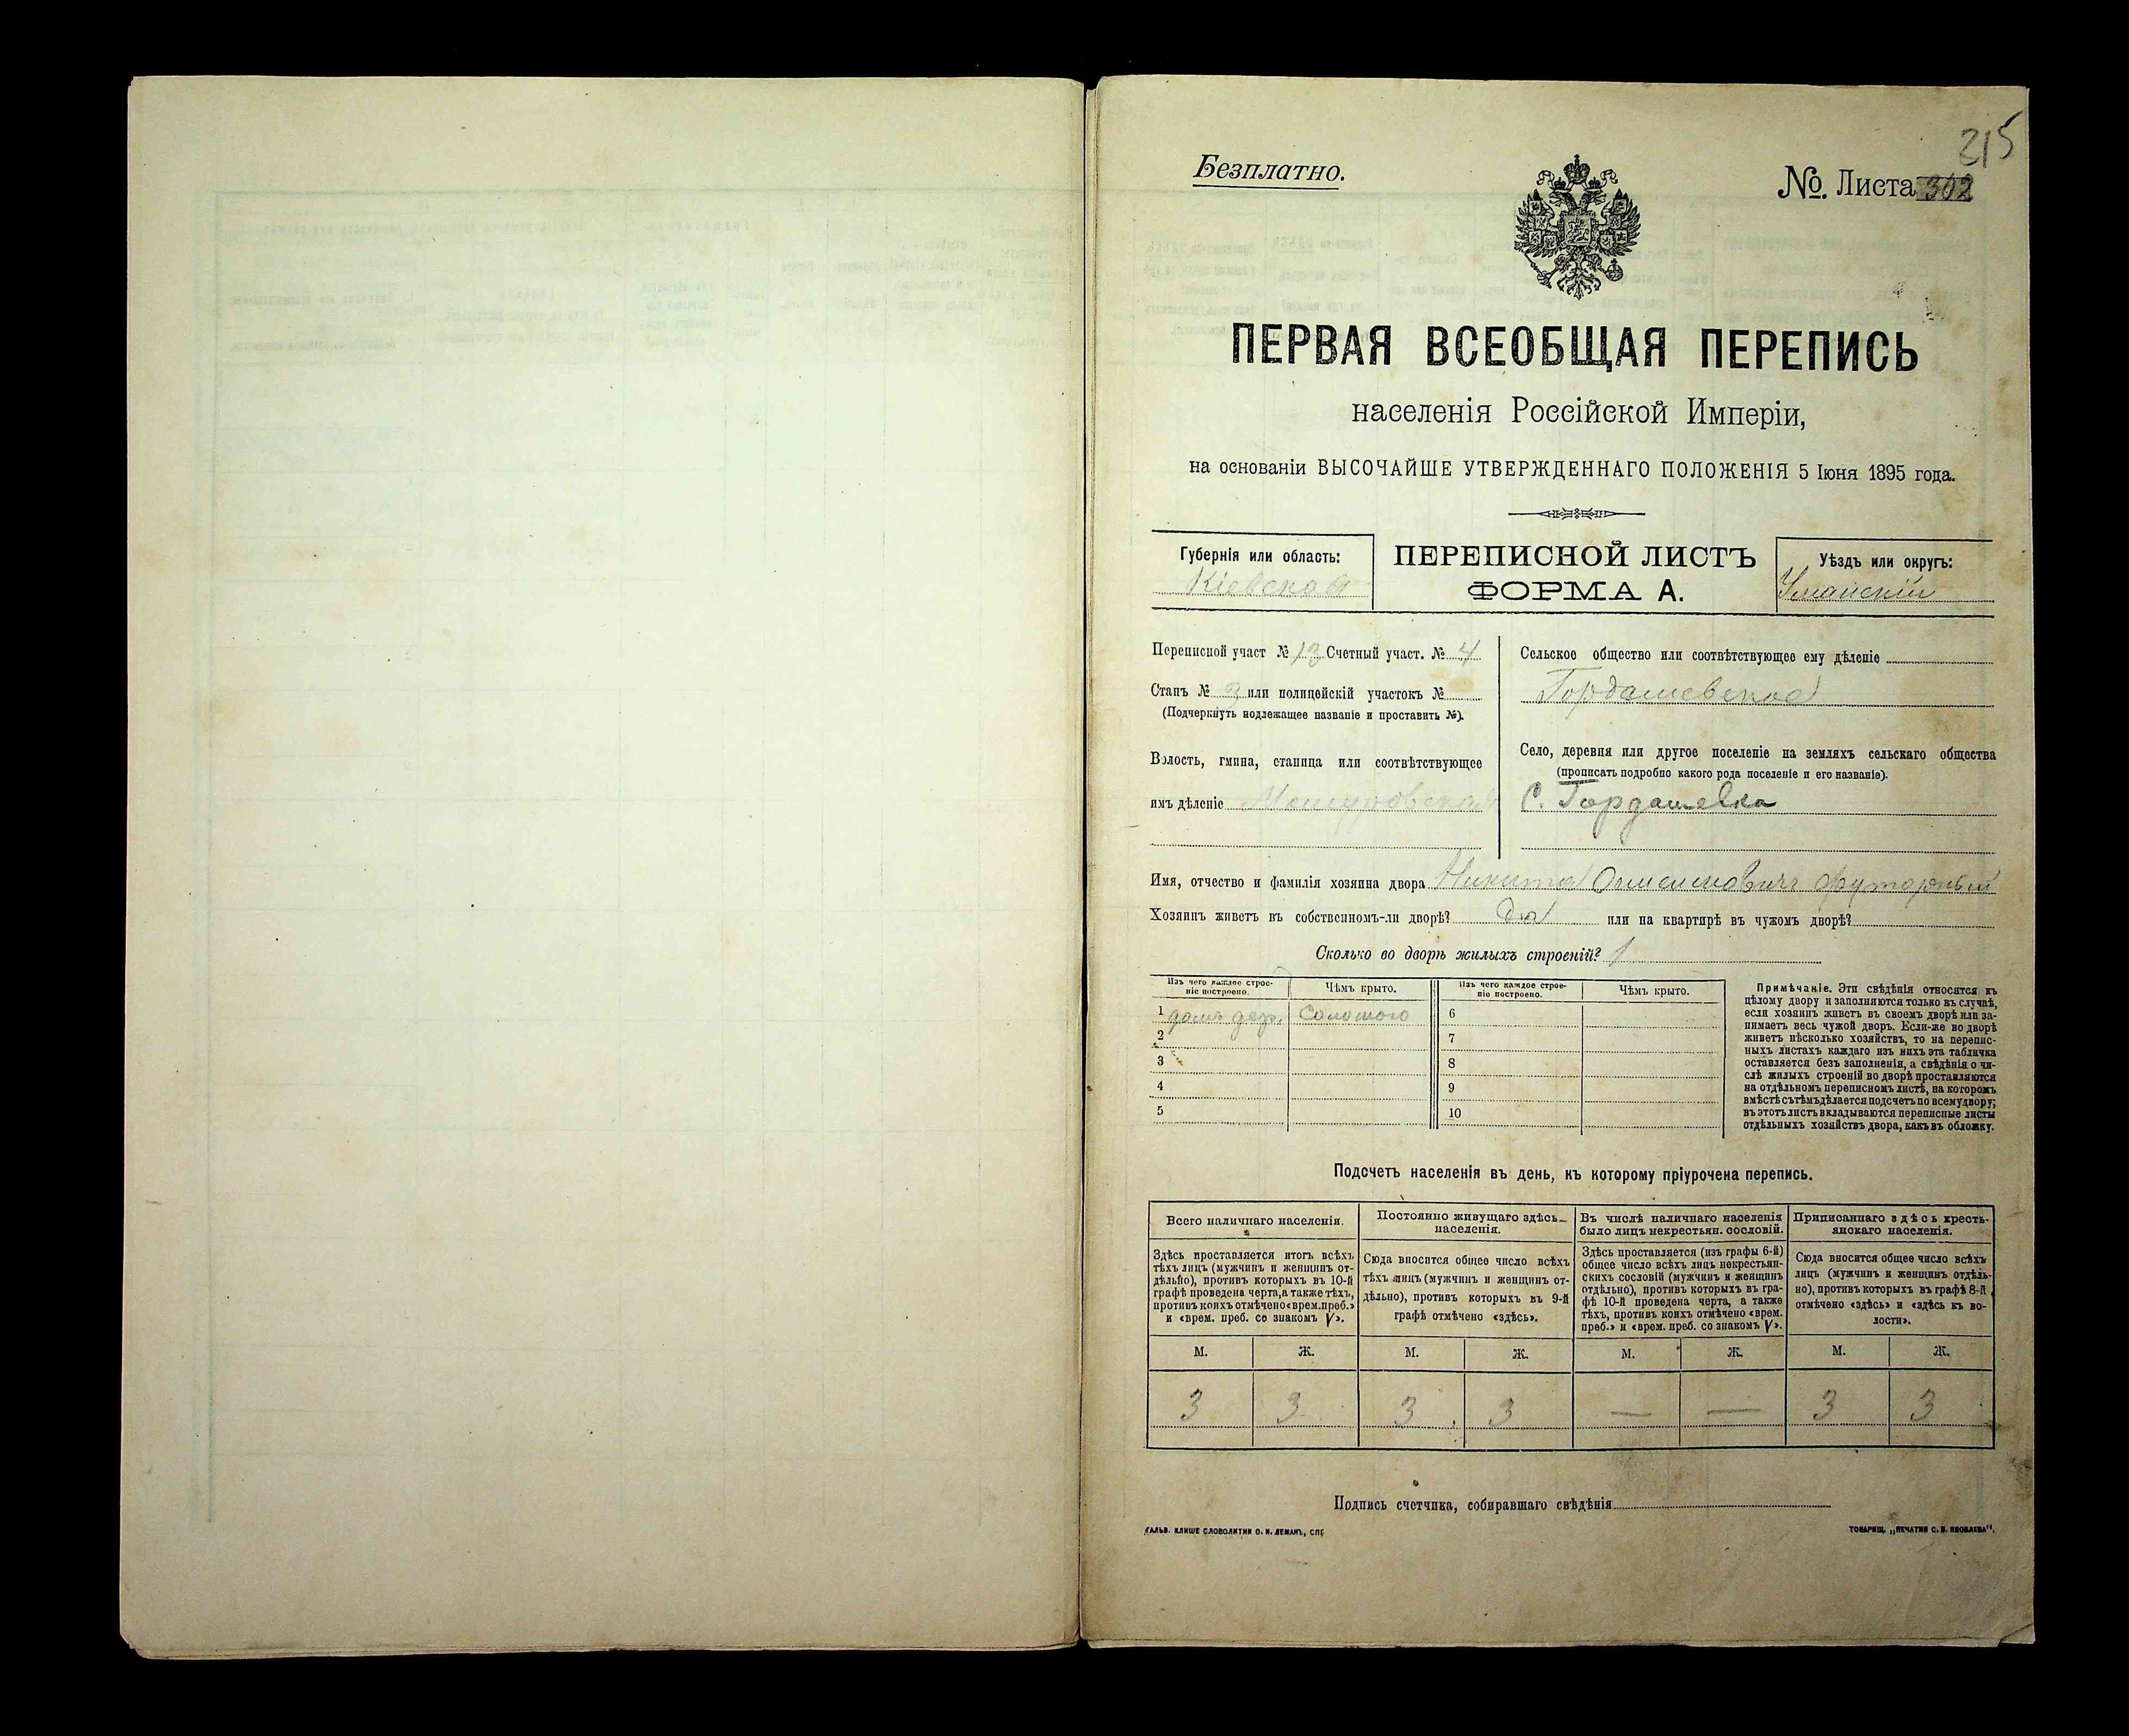 215
Безплатно.
№. Листа 302
ПЕРВАЯ ВСЕОБЩАЯ ПЕРЕПИСЬ
населенія Россійской Имперіи,
на основаніи ВЫСОЧАЙШЕ УТВЕРЖДЕННАГО ПОЛОЖЕНІЯ 5 Іюня 1895 года.
Губернія или область:
Кіевская
ПЕРЕПИСНОЙ ЛИСТЪ
ФОРМА А.
Уѣздъ или округъ:
Уманскій
Переписной участ № 13 Счетный участ. № 4
Станъ № 3 или полицейскій участокъ №
(Подчеркнуть подлежащее названіе и проставить №).
Волость, гмина, станица или соотвѣтствующее
имъ дѣленіе
Сельское общество или соотвѣтствующее ему дѣленіе
Гордашевское
Село, деревня или другое поселеніе на земляхъ сельскаго общества
(прописать подробно какого рода поселеніе и его названіе).
С. Гордашевка
Имя, отчество и фамилія хозяина двора Никита
Хозяинъ живетъ въ собственномъ-ли дворѣ? да или на квартирѣ въ чужомъ дворѣ?
Сколько во дворѣ жилыхъ строеній? 1
Изъ чего каждое строе-
ніе построено.
Чѣмъ крыто.
Изъ чего каждое строе-
ніе построено.
Чѣмъ крыто.
1 домъ дер. Соломою
2
3
4
5
6
7
8
9
10
Примѣчаніе. Эти свѣдѣнія относятся къ
цѣлому двору и заполняются только въ случаѣ,
если хозяинъ живетъ въ своемъ дворѣ или за-
нимаетъ весь чужой дворъ. Если-же во дворѣ
живетъ нѣсколько хозяйствъ, то на перепис-
ныхъ листахъ каждаго изъ нихъ эта табличка
оставляется безъ заполненія, а свѣдѣнія о чи-
слѣ жилыхъ строеній во дворѣ проставляются
на отдѣльномъ переписномъ листѣ, на которомъ
вмѣстѣ съ тѣмъ дѣлается подсчетъ по всему двору;
въ этотъ листъ вкладываются переписные листы
отдѣльныхъ хозяйствъ двора, какъ въ обложку.
Подсчетъ населенія въ день, къ которому пріурочена перепись.
Всего наличнаго населенія.
Здѣсь проставляется итогъ всѣхъ
тѣхъ лицъ (мужчинъ и женщинъ от-
дѣльно), противъ которыхъ въ 10-й
графѣ проведена черта, а также тѣхъ,
противъ коихъ отмѣчено «врем. преб.»
и «врем. преб. со знакомъ V».
Постоянно живущаго здѣсь
населенія.
Сюда вносится общее число всѣхъ
тѣхъ лицъ (мужчинъ и женщинъ от-
дѣльно), противъ которыхъ въ 9-й
графѣ отмѣчено «здѣсь».
Въ числѣ наличнаго населенія
было лицъ некрестьян. сословій.
Здѣсь проставляется (изъ графы 6-й)
общее число всѣхъ лицъ некрестьян-
скихъ сословій (мужчинъ и женщинъ
отдѣльно), противъ которыхъ въ гра-
фѣ 10-й проведена черта, а также
тѣхъ, противъ коихъ отмѣчено «врем.
преб.» и «врем. преб. со знакомъ V».
Приписаннаго здѣсь кресть-
янскаго населенія.
Сюда вносится общее число всѣхъ
лицъ (мужчинъ и женщинъ отдѣль-
но), противъ которыхъ въ графѣ 8-й
отмѣчено «здѣсь» и «здѣсь къ во-
лости».
М. Ж. М. Ж. М. Ж. М. Ж.
3 3 3 3 — — 3 3
Подпись счетчика, собиравшаго свѣдѣнія
ГАЛЬВ. КЛИШЕ СЛОВОЛИТНИ О. И. ЛЕМАНЪ, СПБ
ТОВАРИЩ. „ПЕЧАТНЯ С. П. ЯКОВЛЕВА“.